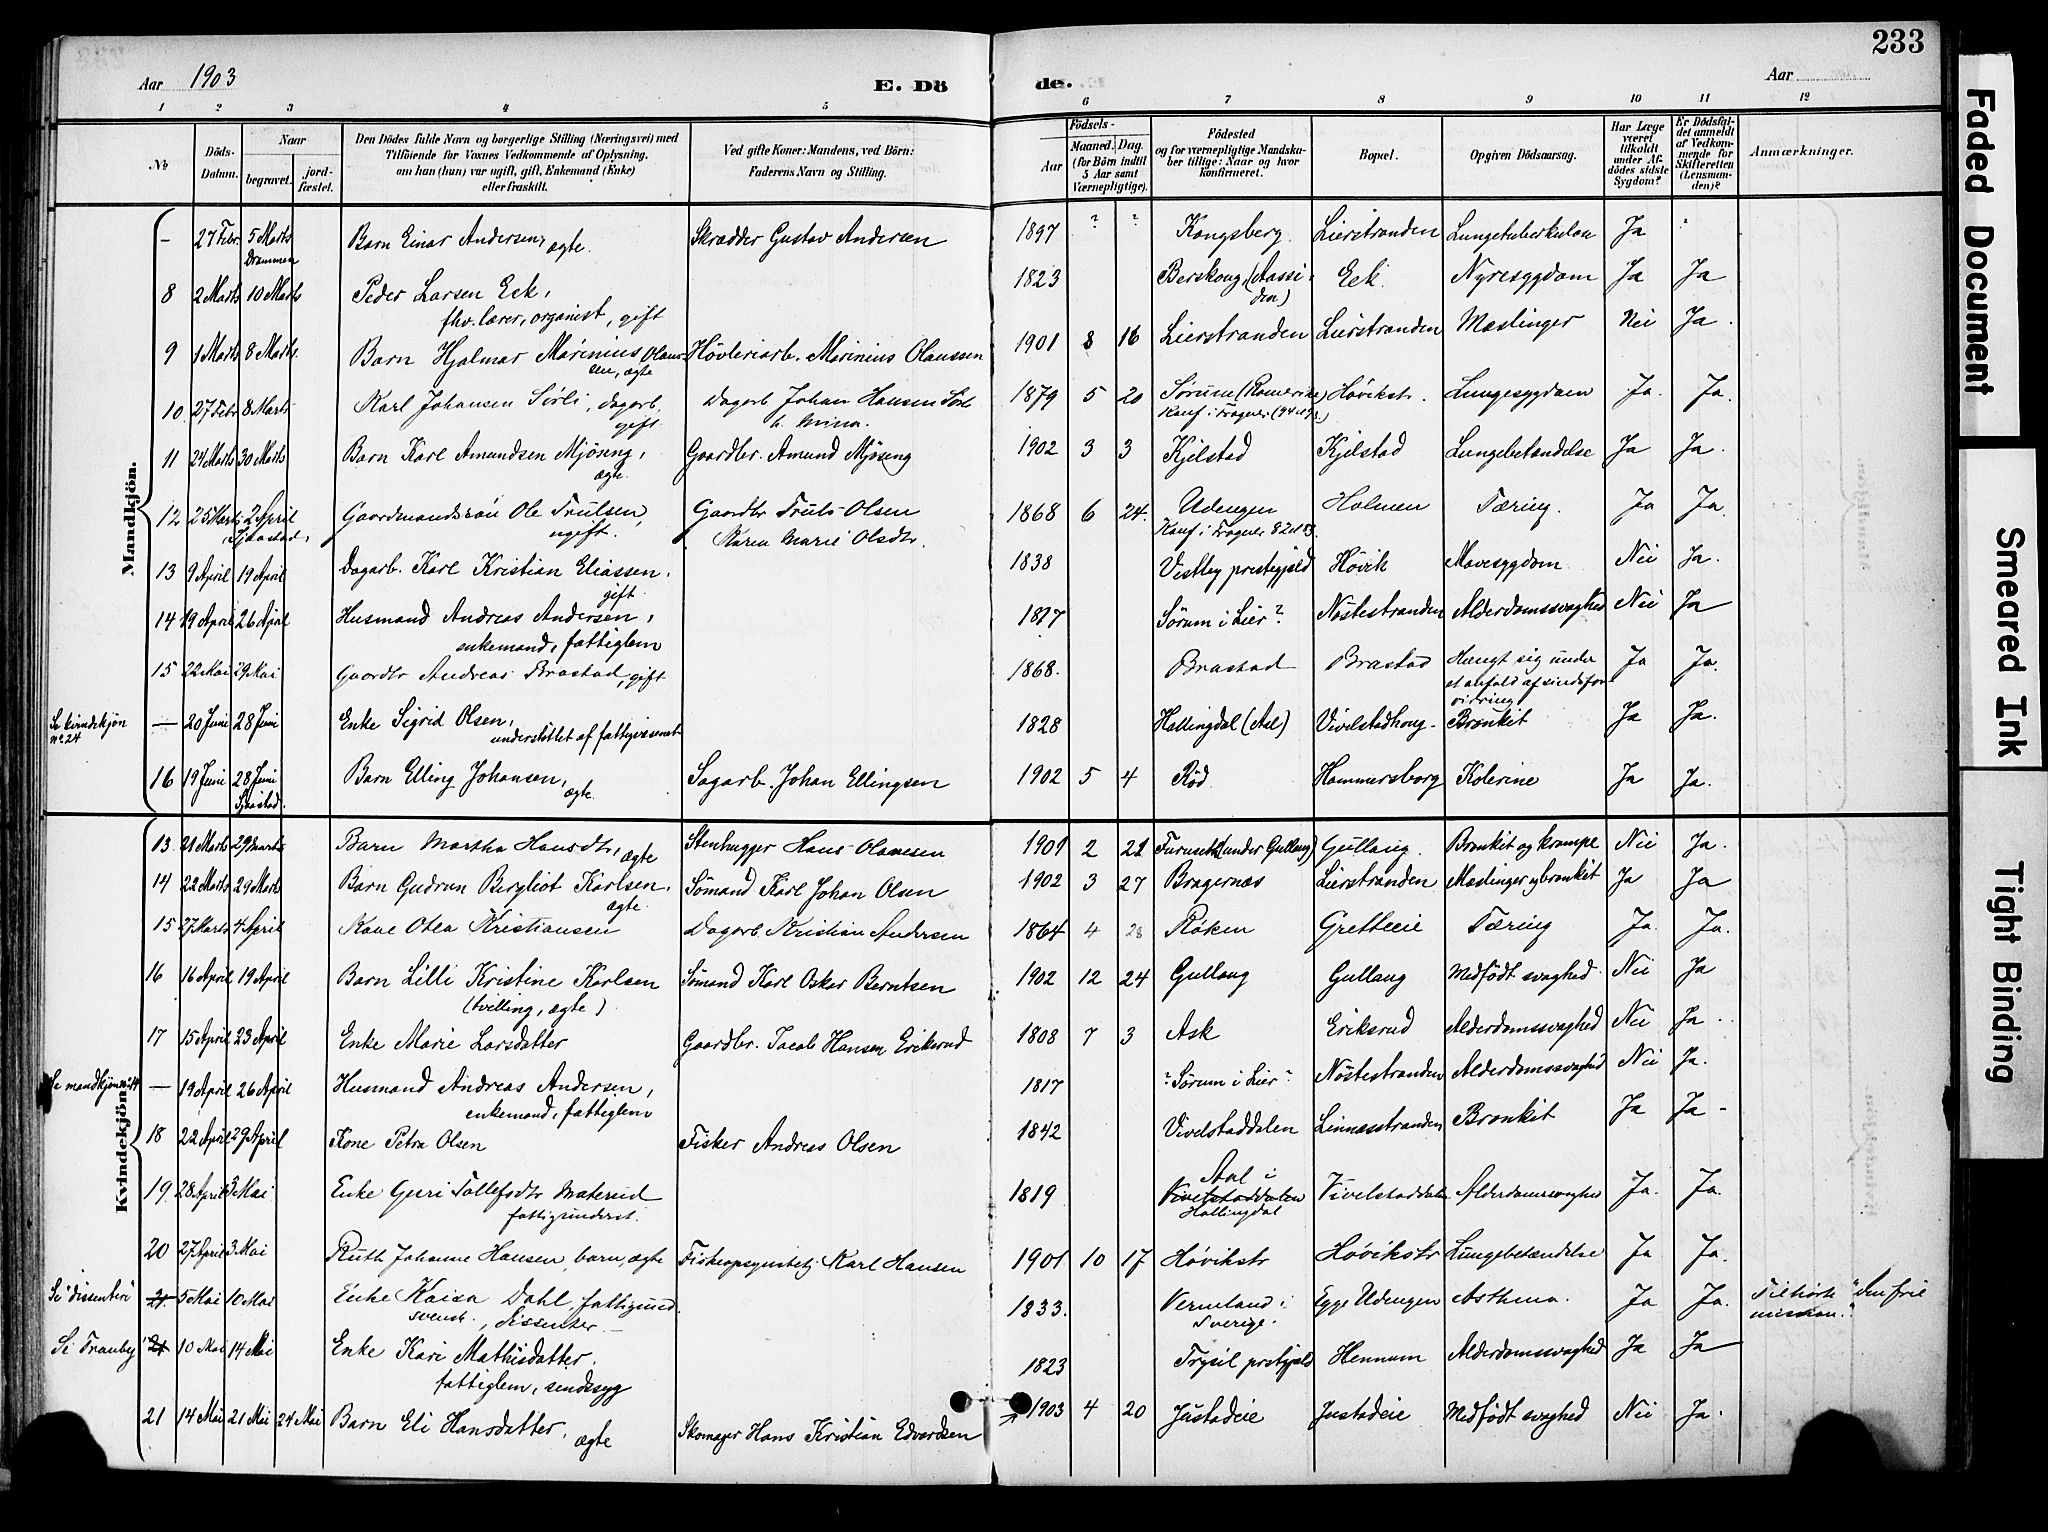 233
Aar 1903
E. Dö de.
Aar
1 2 3 4 5 6 7 8 9 10 11 12
No
Döds-Datum.
Naar
begravet.
jord-fæstet.
Den Dödes fulde Navn og borgerlige Stilling (Næringsvei) med
Tilföiende for Voxnes Vedkommende af Oplysning,
om han (hun) var ugift, gift, Enkemand (Enke)
eller fraskilt.
Ved gifte Koner: Mandens, ved Börn:
Faderens Navn og Stilling.
Födsels-
Aar
Maaned. Dag.
(for Börn indtil
5 Aar samt
Værnepligtige).
Födested
og for værnepligtige Mandska-
ber tillige: Naar og hvor
konfirmeret.
Bopæl.
Opgiven Dödsaarsag.
Har Læge
været
tilkaldt
under Af-
dödes sidste
Sygdom?
Er Dödsfal-
det anmeldt
af Vedkom-
mende for
Skifteretten
(Lensman-
den)?
Anmærkninger.
Mandkjön.
- 27 Febr. 5 Marts Drammen Barn Einar Andersen, ægte. Skrædder Gustav Andersen 1897 ? ? Kongsberg Lierstranden Lungetuberkulose Ja
8 2 Marts 10 Marts Peder Larsen Eek, fhv. lærer, organist, gift 1823 Berskoug, (Aassiden) Eek Nyresygdom Ja Ja
9 1 Marts 8 Marts. Barn Hjalmar Marinius Olaussen, ægte Høvleriarb. Marinius Olaussen 1901 8 16 Lierstranden Lierstranden Mæslinger Nei Ja.
10. 27 Febr. 8 Marts Karl Johansen Sørli, dagarb. gift. Dagarb Johan Hansen 1879 5 20 Sørum (Romerike) Konf. i Frogner Høvikstr. Lungesygdom Ja. Ja.
11 24 Marts 30 Marts Barn Karl Amundsen Mjøseng, ægte. Gaardbr. Amund Mjøseng 1902 3 3 Kjelstad Kjelstad Lungebetændelse Ja Ja.
12 25 Marts 2 April Sjaastad, Gaardmandssøn Ole Trulsen, ugift. Gaardbr Truls Olsen Karen Marie Olsdtr. 1868 6 24. Udengen Konf. i Frogner 82 Holmen Tæring. Ja Ja.
13 9 April 19 April Dagarb. Karl Kristian Eliassen, gift. 1838 Vestby prestegjeld Høvik Mavesygdom Nei Ja.
14 19 April 26 April Husmand Andreas Andersen, enkemand, fattiglem 1817 Sørum i Lier? Nøstestranden Alderdomssvaghed Nei Ja
15 22 Mai 29 Mai Gaardbr Andreas Brastad, gift 1868. Brastad Brastad Hængt sig under et anfald af sindsforvirring Ja Ja.
Se kvindekjøn no. 24 - 20 Juni 28 Juni Enke Sigrid Olsen, understøttet af fattigvæsenet 1828 Hallingdal (Aal) Vivelstadhoug Bronkit Ja Ja.
16 19 Juni 28 Juni Sjaastad. Barn Elling Johansen, ægte. Sagarb. Johan Ellingsen 1902 5 4 Rød Hammersborg Kolerine Ja Ja.
Kvindekjön.
13. 21 Marts 29 Marts Barn Martha Hansdtr, ægte Stenhugger Hans Olavesen 1901 2 21 Furuseth (under Gullaug) Gullaug. Bronkit og krampe Nei Ja.
14 22 Marts 29 Marts Barn Gudrun Bergliot Karlsen, ægte. Sømand Karl Johan Olsen 1902 3 27 Bragernæs Lierstranden Mæslinger og bronkit Ja Ja
15 27 Marts 4 April Kone Otea Kristiansen Dagarb. Kristian Andersen 1864 4 28 Røken Gretteeie Tæring Ja. Ja.
16 16 April 19 April Barn Lilli Kristine Karlsen (tvilling, ægte) Sømand Karl Oskar Berntsen 1902 12 24 Gullaug Gullaug Medfødt svaghed Nei Ja
17 15 April 23 April Enke Marie Larsdatter Gaardbr. Jacob Hansen Eriksrud 1808 7 3 Ask Eriksrud Alderdomssvaghed Nei Ja
Se mandkjøn no. 14 - 19 April 26 April Husmand Andreas Andersen, enkemand, fattiglem 1817 ? Sørum i Lier? Nøstestranden Alderdomssvaghed Nei Ja.
18 22 April 29 April Kone Petra Olsen Fisker Andreas Olsen 1842 Vivelstaddalen Linnesstranden Bronkit Ja Ja -
19. 28 April 3 Mai Enke Guri Tollefsdtr Moterud fattigunderst. 1819 Aal i Vivelstaddalen Hallingdal Vivelstaddalen Alderdomssvaghed Ja. Ja.
20 27 April 3 Mai Ruth Johanne Hansen, barn, ægte Fiskeopsynsbetj. Karl Hansen 1901 10 17 Høvikstr Høvikstr Lungebetændelse Ja Ja.
Se "dissentere" 21. 5 Mai 10 Mai Enke Kaisa Dahl, fattigund. svensk, dissenter. 1833. Vermland i Sverige. Egge Udengen Asthma. Ja Ja. Tilhørte "den frie mission."
Se Tranby 21 10 Mai 14 Mai Enke Kari Mathisdatter. fattiglem, sindssyg 1823 Trysil prstgjeld Hennum Alderdomssvaghed Ja Ja
21 14 Mai 21 Mai 24 Mai Barn Eli Hansdatter, ægte Skomager Hans Kristian Edvardsen 1903 4 20 Justadeie Justadeie Medfødt svaghed Nei Ja.
Faded Document
Smeared Ink
Tight Binding